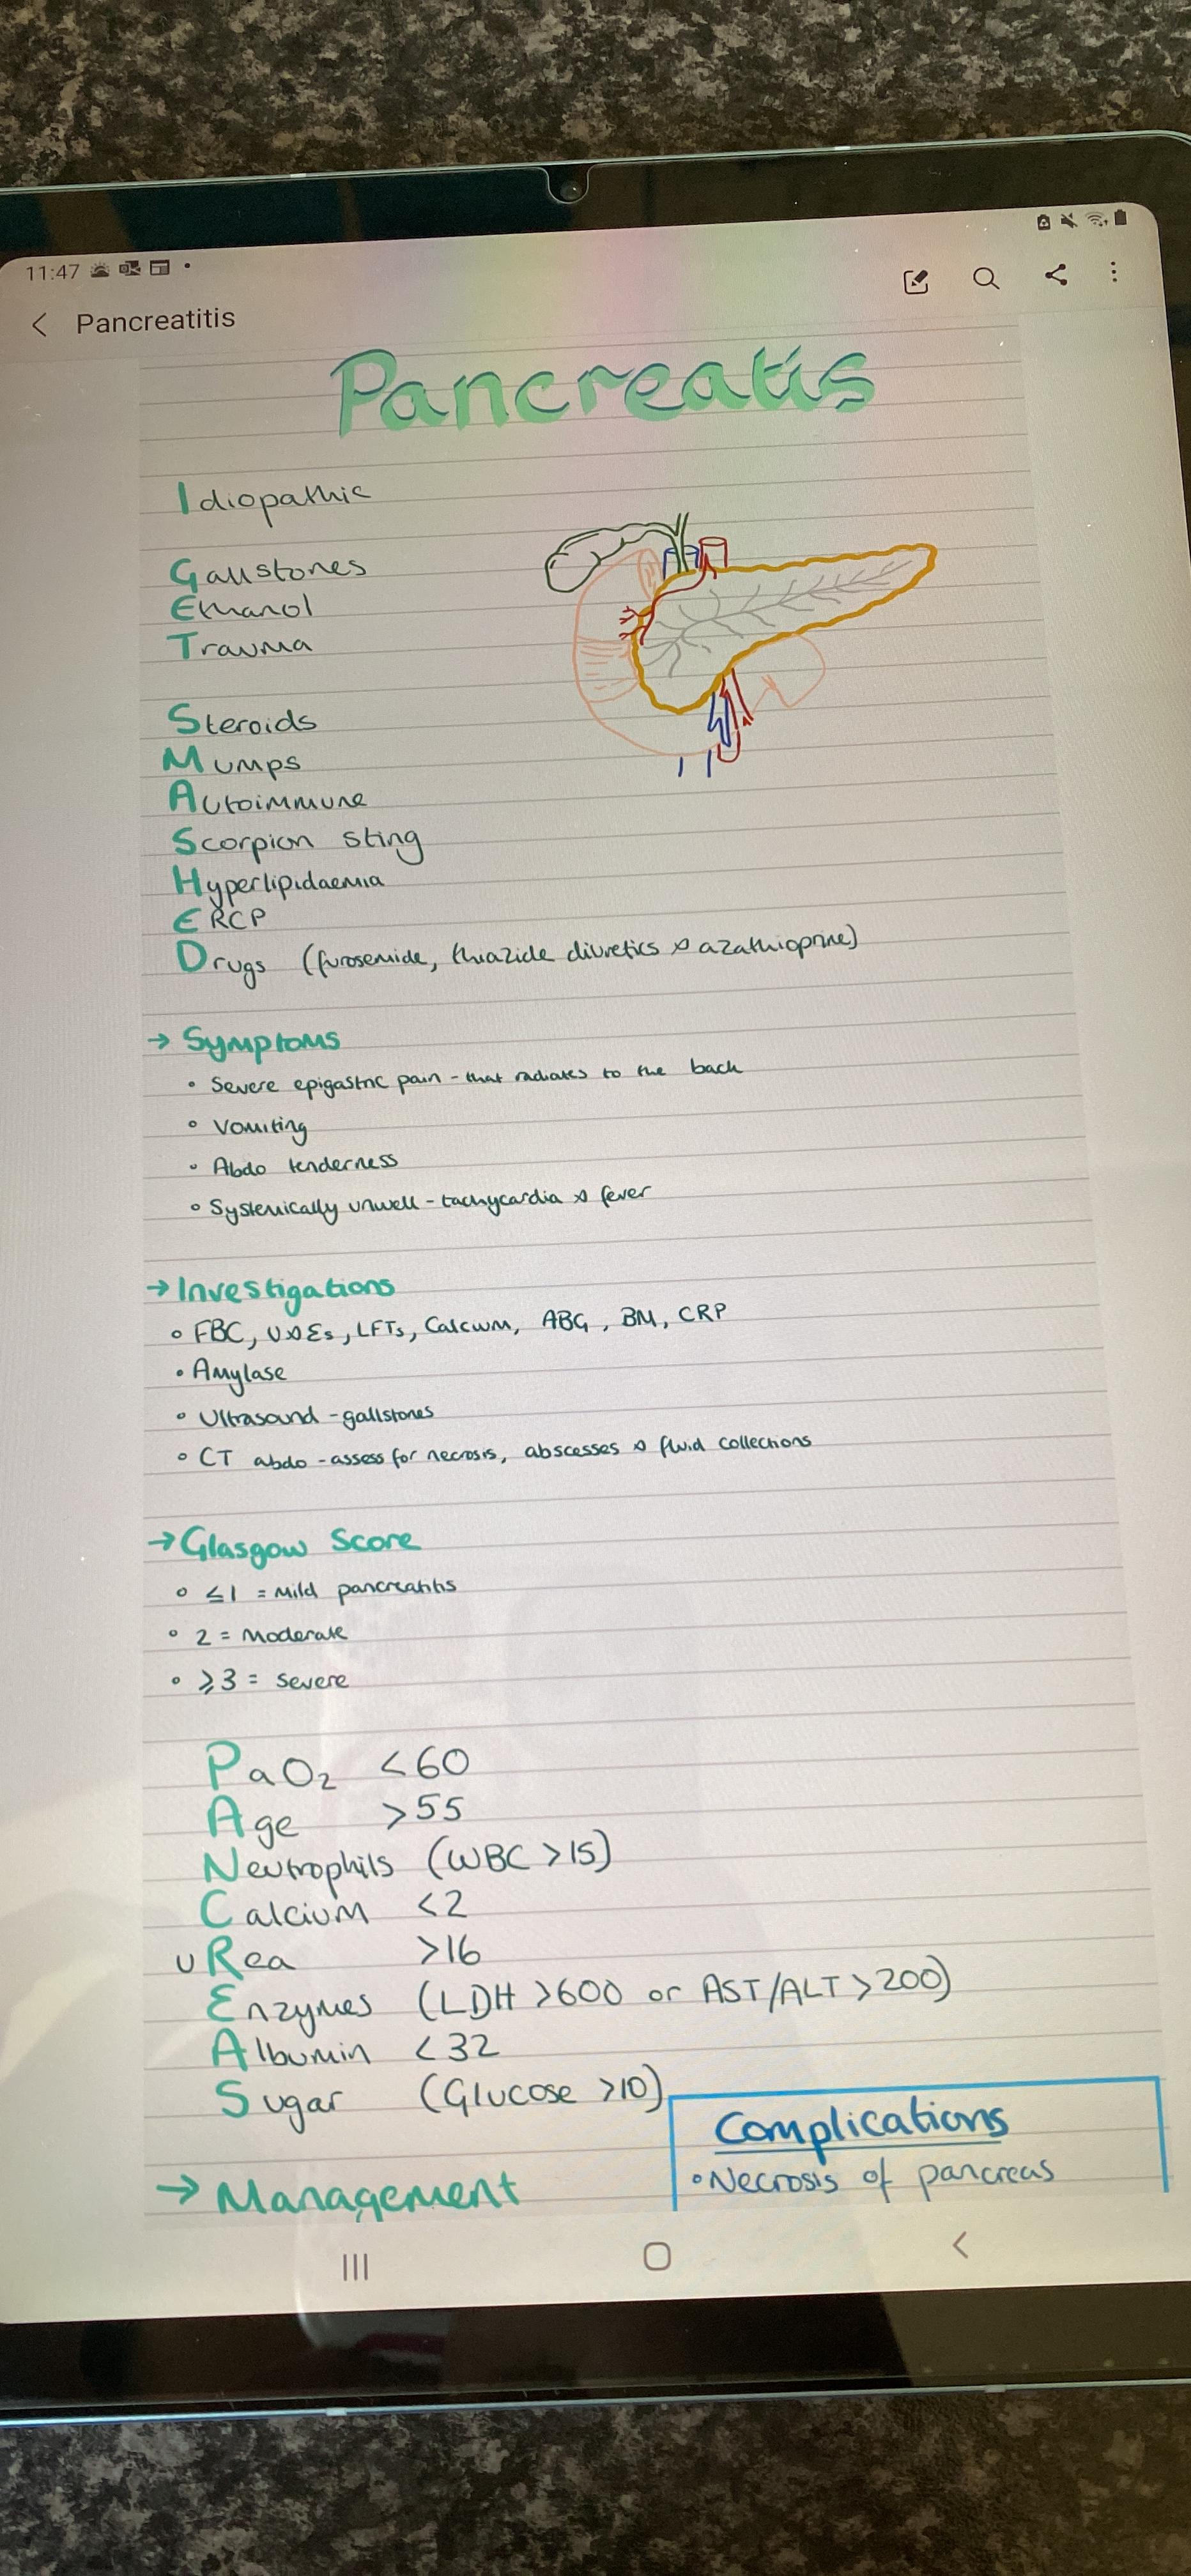 11:47
Pancreatitis
Pancreatis
Idiopathic
Gallstones
Ethanol
Trauma
Steroids
Mumps
Autoimmune
Scorpion sting
Hyperlipidaemia
ERCP
Drugs (furosemide, thiazide diuretics & azathioprine)
→ Symptoms
• Severe epigastric pain - that radiates to the back
• Vomiting
• Abdo tenderness
• Systemically unwell - tachycardia & fever
→ Investigations
• FBC, U&Es, LFTs, Calcium, ABG, BM, CRP
• Amylase
• Ultrasound - gallstones
• CT abdo - assess for necrosis, abscesses & fluid collections
→ Glasgow Score
• ≤1 = Mild pancreatitis
• 2 = Moderate
• ≥3 = Severe
PaO₂ <60
Age >55
Neutrophils (WBC >15)
Calcium <2
uRea >16
Enzymes (LDH >600 or AST/ALT >200)
Albumin <32
Sugar (Glucose >10)
→ Management
Complications
• Necrosis of pancreas